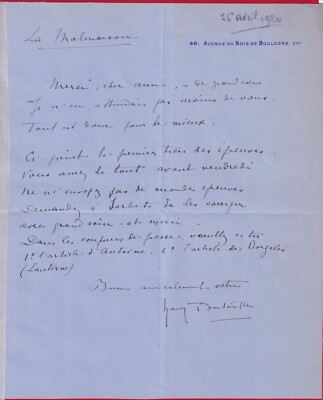 26 Avril 1920
48. AVENUE DU BOIS DE BOULOGNE. XVI
La Malmaison
Merci, cher ami, de grand cœur
Je n'en attendais pas moins de vous.
Tout est donc pour le mieux.
Ci joint le premier tiers des épreuves.
Vous aurez le tout avant vendredi
Ne m'envoyez pas de secondes épreuves
Demandez à de les corriger
avec grand soin et merci
Dans les coupures de presse, veuillez citer
1° l'article d'Antoine, 2° l'article de Dorgelès
(Lanterne)
Bien amicalement votre
Henry Bataille